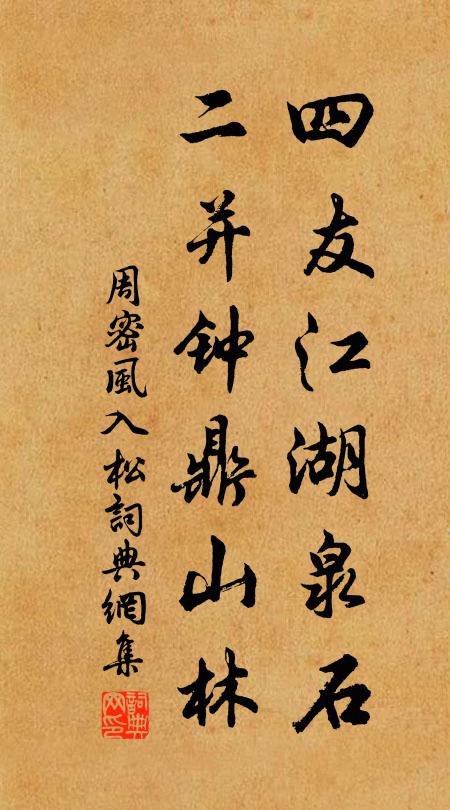 四友江湖泉石
二并钟鼎山林
周密風入松詞典網集
詞典网印